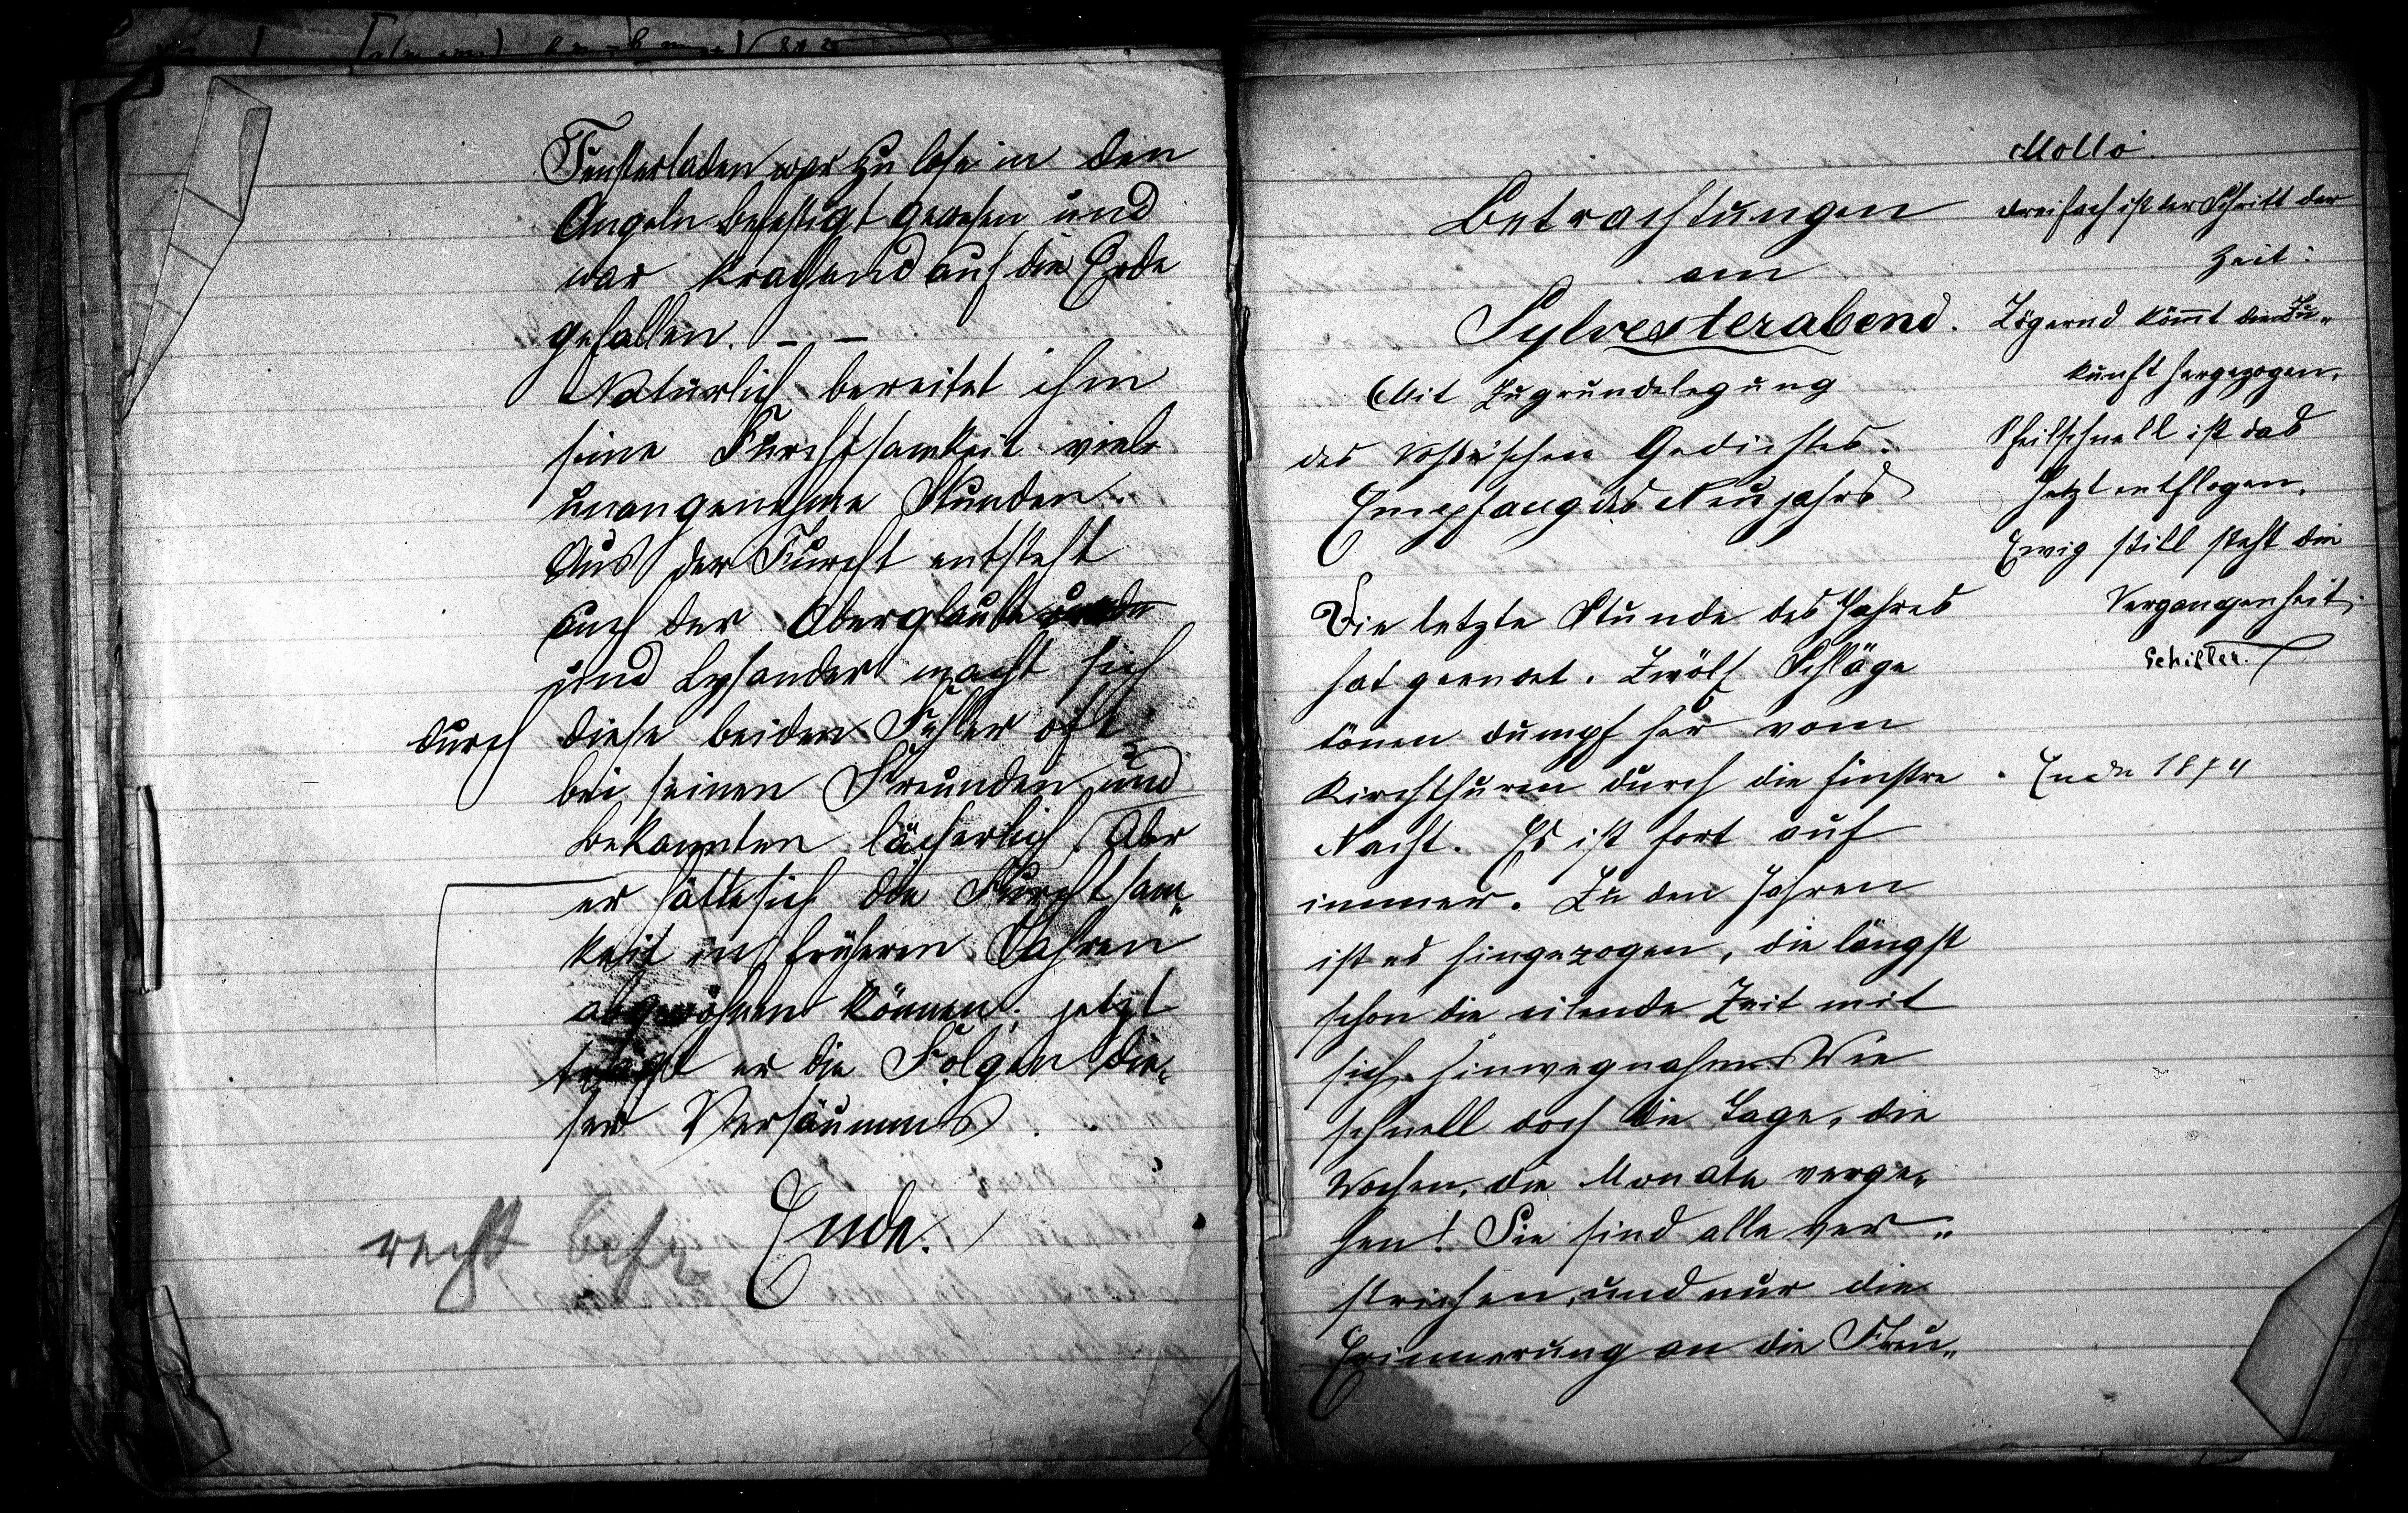 Fensterladen war zu lose in den
Angeln befestigt gewesen und
war krachend auf die Erde
gefallen. – –
Natürlich bereitet ihm
seine Furchtsamkeit viele
unangenehme Stunden.
Aus der Furcht entsteht
auch der Aberglaube
und Lysander macht sich
durch diese beiden Fehler oft
bei seinen Freunden und
bekannten lächerlich. Aber
er hätte sich die Furchtsam„
keit in früheren Jahren
abgewöhnen können; jetzt
trägt er die Folgen die„
ser Versäumnis.
Ende.
recht
Betrachtungen
am
Sylvesterabend.
Mit Zugrundelegung
des Gedichtes:
Empfang des Neujahrs
Die letzte Stunde des Jahres
hat geendet. Zwölf Schläge
tönen dumpf her vom
Kirchthurm durch die finstre
Nacht. Es ist fort auf
immer. Zu den Jahren
ist es hingezogen, die längst
schon die eilende Zeit mit
sich hinwegnahm. Wie
schnell doch die Tage, die
Wochen, die Monate verge„
hen! Sie sind alle ver„
strichen, und nur die
Erinnerung an die Freu„
Motto.
Dreifach ist der Schritt der
Zeit:
Zögernd kom̄t die Zu„
kunft hergezogen,
Pfeilschnell ist das
Jetzt entflogen,
Ewig still steht die
Vergangenheit.
Schiller.
Ende 1874